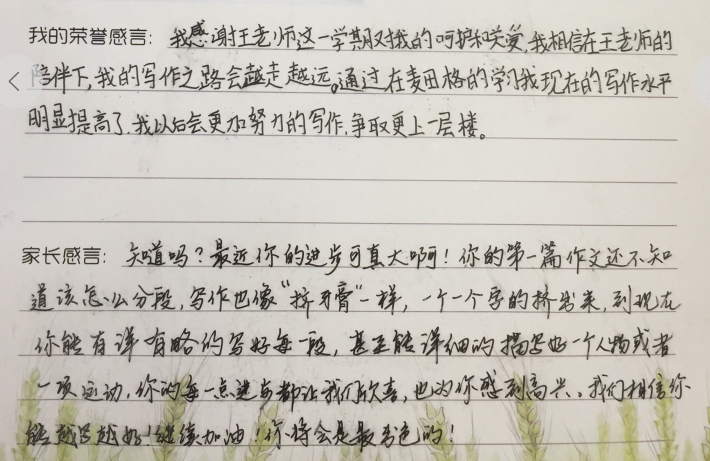 我的荣誉感言：我感谢王老师这一学期对我的呵护和关爱，我相信在王老师的
陪伴下，我的写作之路会越走越远。通过在麦田格的学习我现在的写作水平
明显提高了，我以后会更加努力的写作，争取更上一层楼。
家长感言：知道吗？最近你的进步可真大啊！你的第一篇作文还不知
道该怎么分段，写作也像“挤牙膏”一样，一个一个字的挤出来，到现在
你能有详有略的写好每一段，甚至能详细的描写好一个人物或者
一项运动，你的每一点进步都让我们欣喜，也为你感到高兴。我们相信你
能越写越好！继续加油！你将会是最出色的！